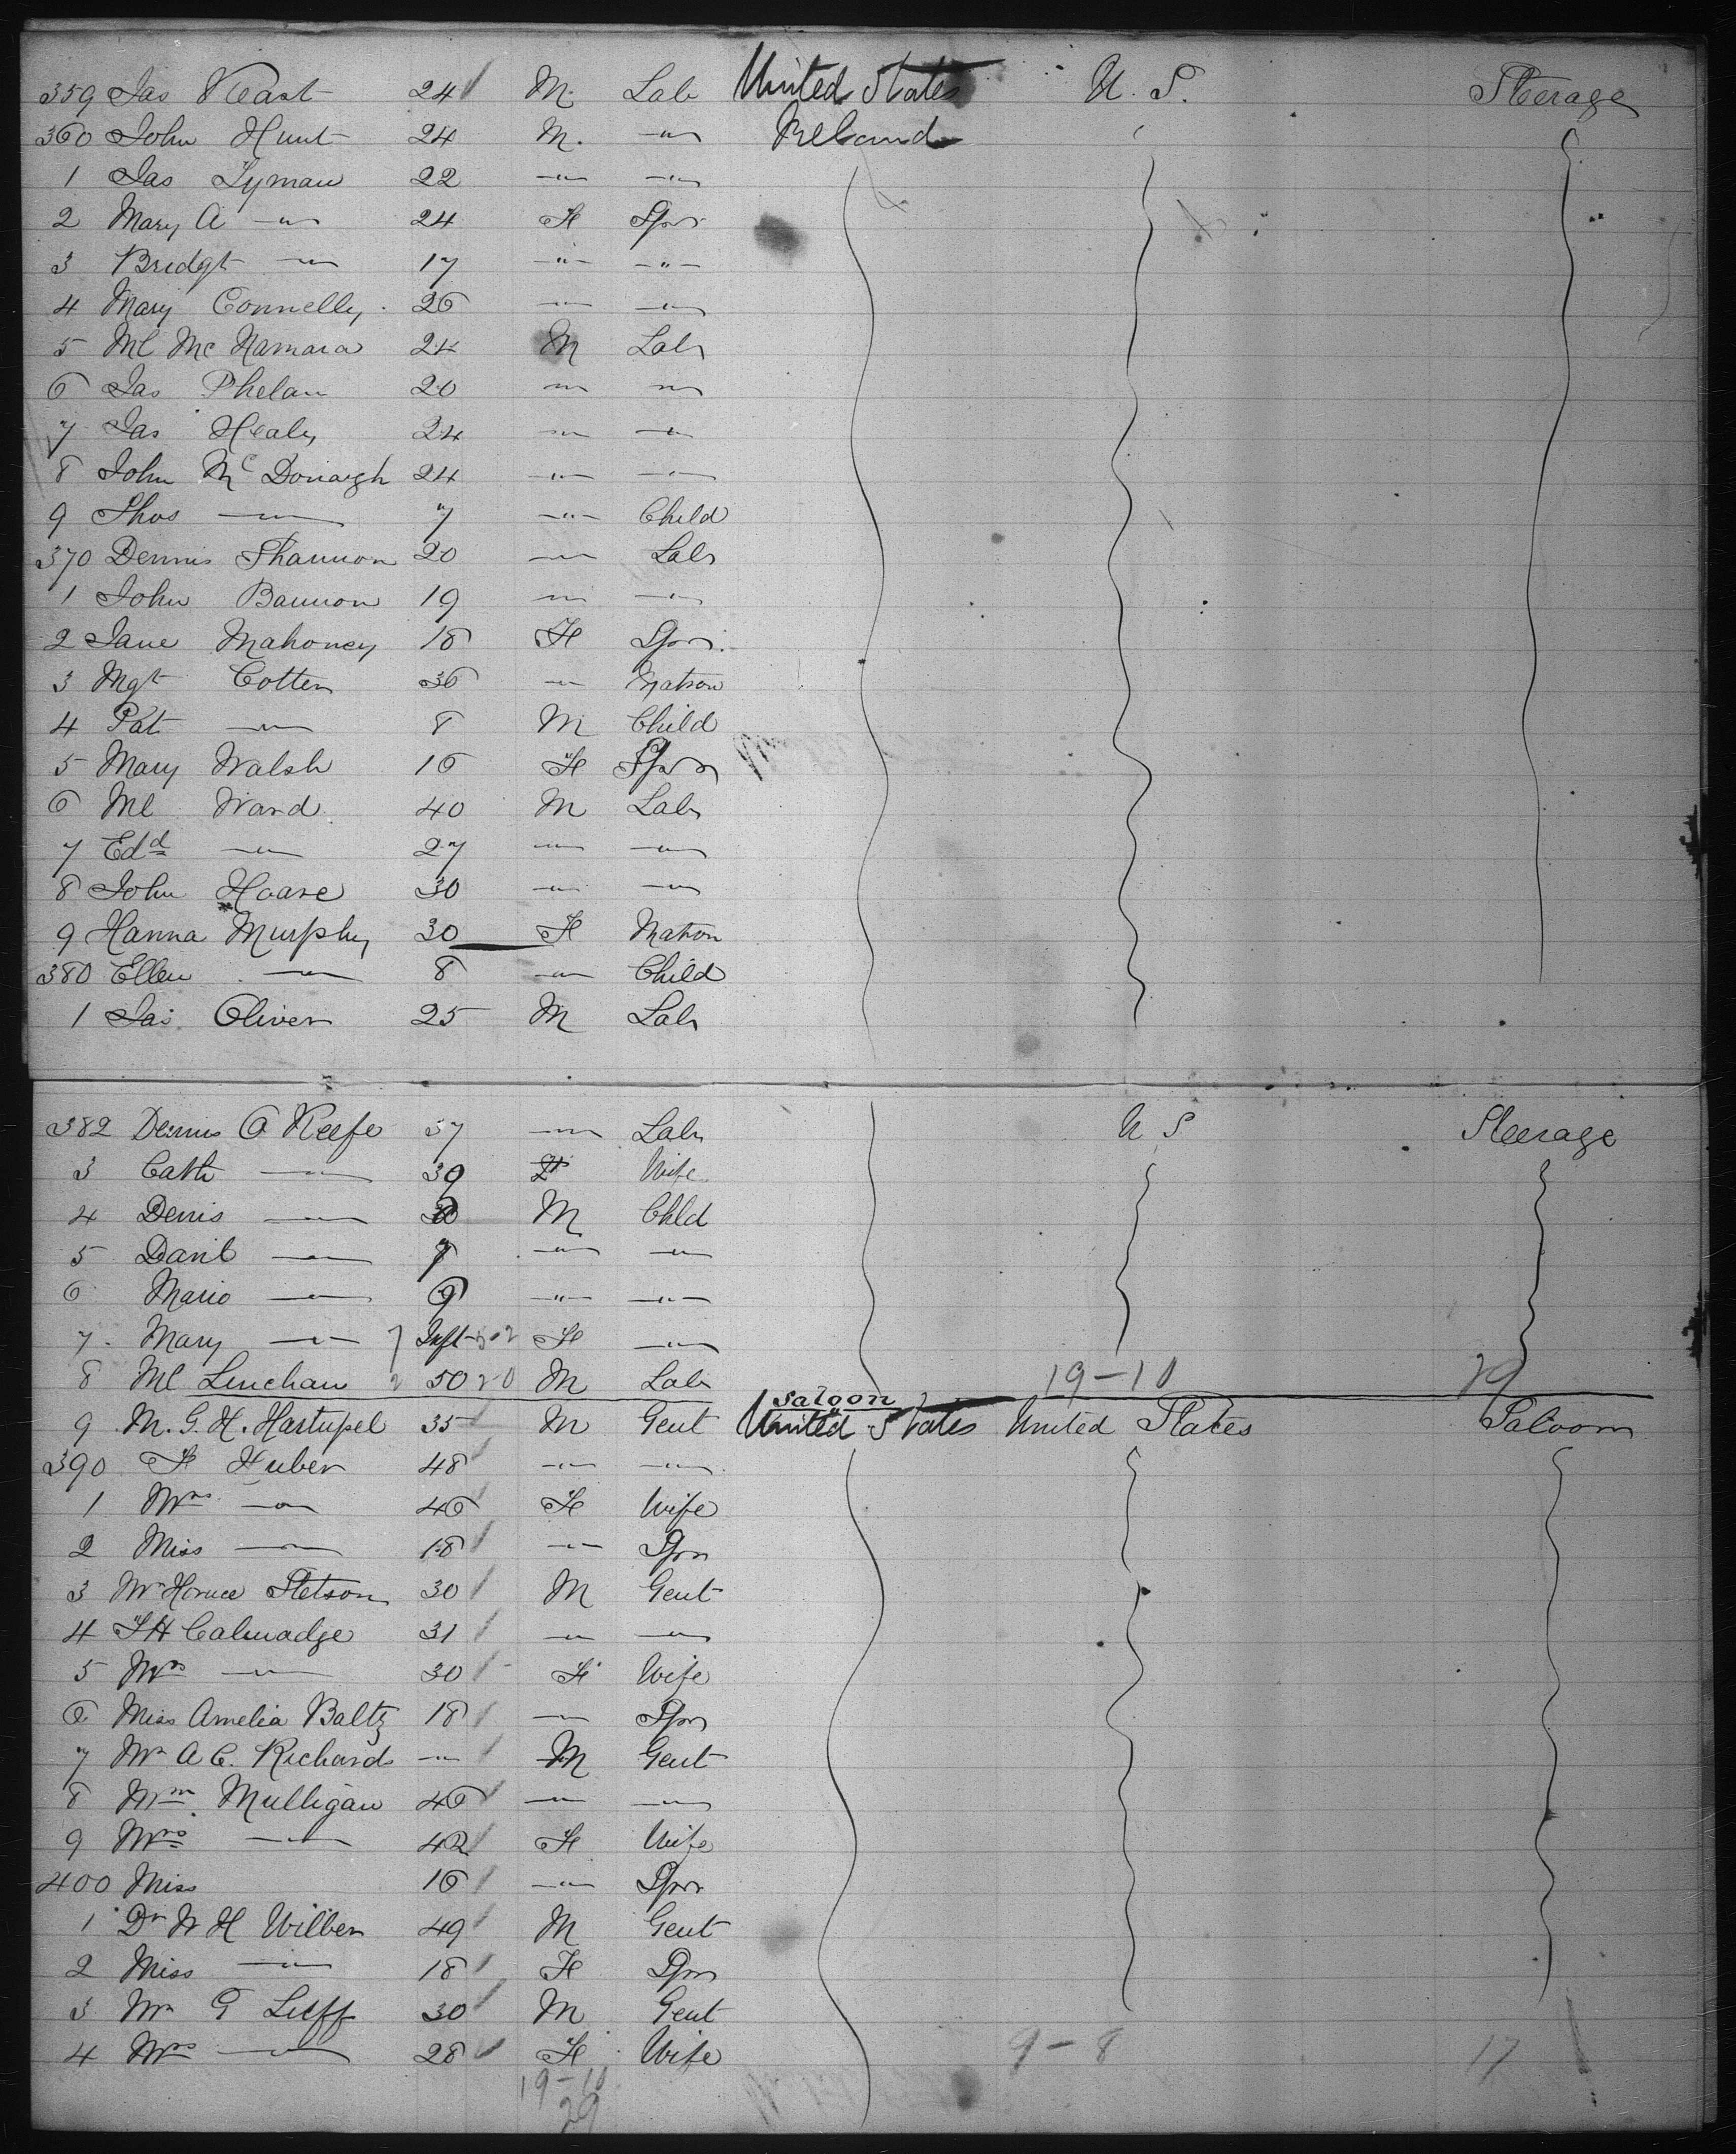 359 Jas Keast 24 M. Lab United States U. S. Steerage
360 John Hunt 24 M. -"- Ireland
1 Jas Lyman 22 -"- -"-
2 Mary A -"- 24 F Spr
3 Bridgt -"- 17 -"- -"-
4 Mary Connelly 26 -"- -"-
5 Ml Mc Namara 24 M Labr
6 Jas Phelan 20 -"- -"-
7 Jas Healy 24 -"- -"-
8 John Mc Donaugh 24 -"- -"-
9 Thos -"- 7 -"- Child
370 Dennis Shannon 20 -"- Labr
1 John Bannon 19 -"- -"-
2 Jane Mahoney 18 F Spr
3 Mgt Cotter 36 -"- Matron
4 Pat -"- 8 M Child
5 Mary Walsh 16 F Spr
6 Ml Ward 40 M Labr
7 Edd -"- 27 -"- -"-
8 John Hoare 30 -"- -"-
9 Hanna Murphy 30 F Matron
380 Ellen -"- 8 -"- Child
1 Jas Oliver 25 M Labr
382 Dennis O Keefe 37 -"- Labr U S Steerage
3 Cath -"- 39 F Wife
4 Denis -"- M Chld
5 -"- -"- -"-
6 Mario -"- 9 -"- -"-
7 Mary -"- Inft F -"-
8 Ml Linehan 50 M Labr 19-10 29
Saloon
9 M. G. H. Hartupel 35 M Gent United States United States Saloon
390 F Huber 48 -"- -"-
1 Mrs -"- 46 F Wife
2 Miss -"- 18 -"- Spr
3 Mr Horace Stetson 30 M Gent
4 Calmadge 31 -"- -"-
5 Mrs -"- 30 F Wife
6 Miss Amelia Baltz 18 -"- Spr
7 Mr A C. Richards -"- M Gent
8 Wm Mulligan 46 -"- -"-
9 Mrs -"- 42 F Wife
400 Miss 16 -"- Spr
1 Dr W H Wilber 49 M Gent
2 Miss -"- 18 F Spr
3 Mr G Luff 30 M Gent
4 Mrs -"- 28 F Wife 9-8 17
19-10
29